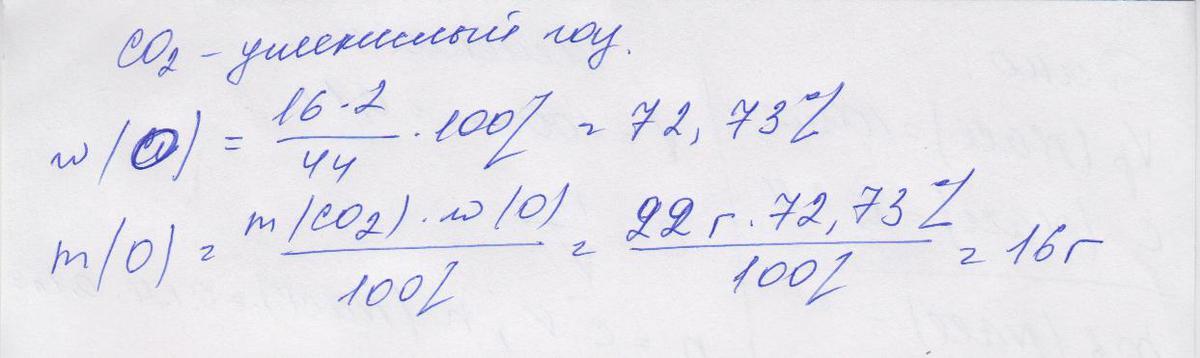 CO₂ – углекислый газ.
w(O) = 16·2/44 · 100% = 72,73%
m(O) = m(CO₂)·w(O)/100% = 22г·72,73%/100% = 16г